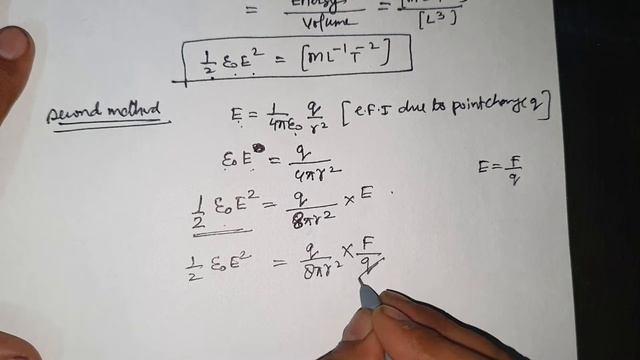 = Energy / Volume = [L³]
1/2 ε₀E² = [ML⁻¹T⁻²]
Second method E = 1/4πε₀ q/r² [e.f.I due to point charge q]
ε₀E = q/4πr²
E = F/q
1/2 ε₀E² = q/8πr² × E .
1/2 ε₀E² = q/8πr² × F/q